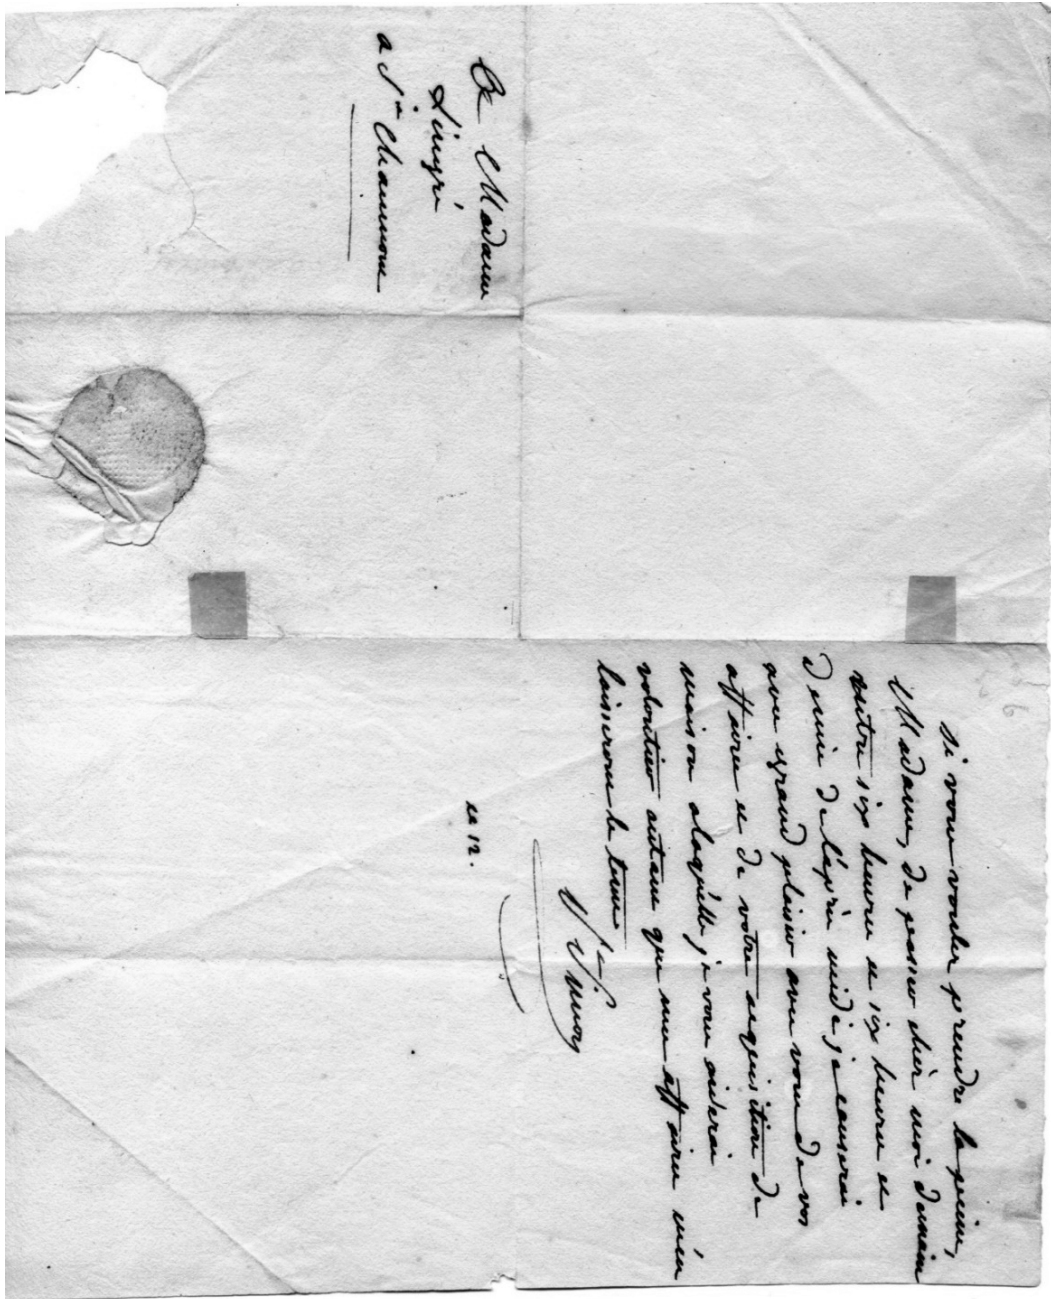 si vous voulez prendre la peine,
Madame, de passer chez moi demain
entre six heures et six heures et
demie de l'après midi je causerai
avec grand plaisir avec vous de vos
affaires et de votre acquisition de
maison alaquelle je vous aiderai
volontier autant que mes affaires m'en
laisseront le tems
St Simon
ce 12.
A Madame
à St Chaumont